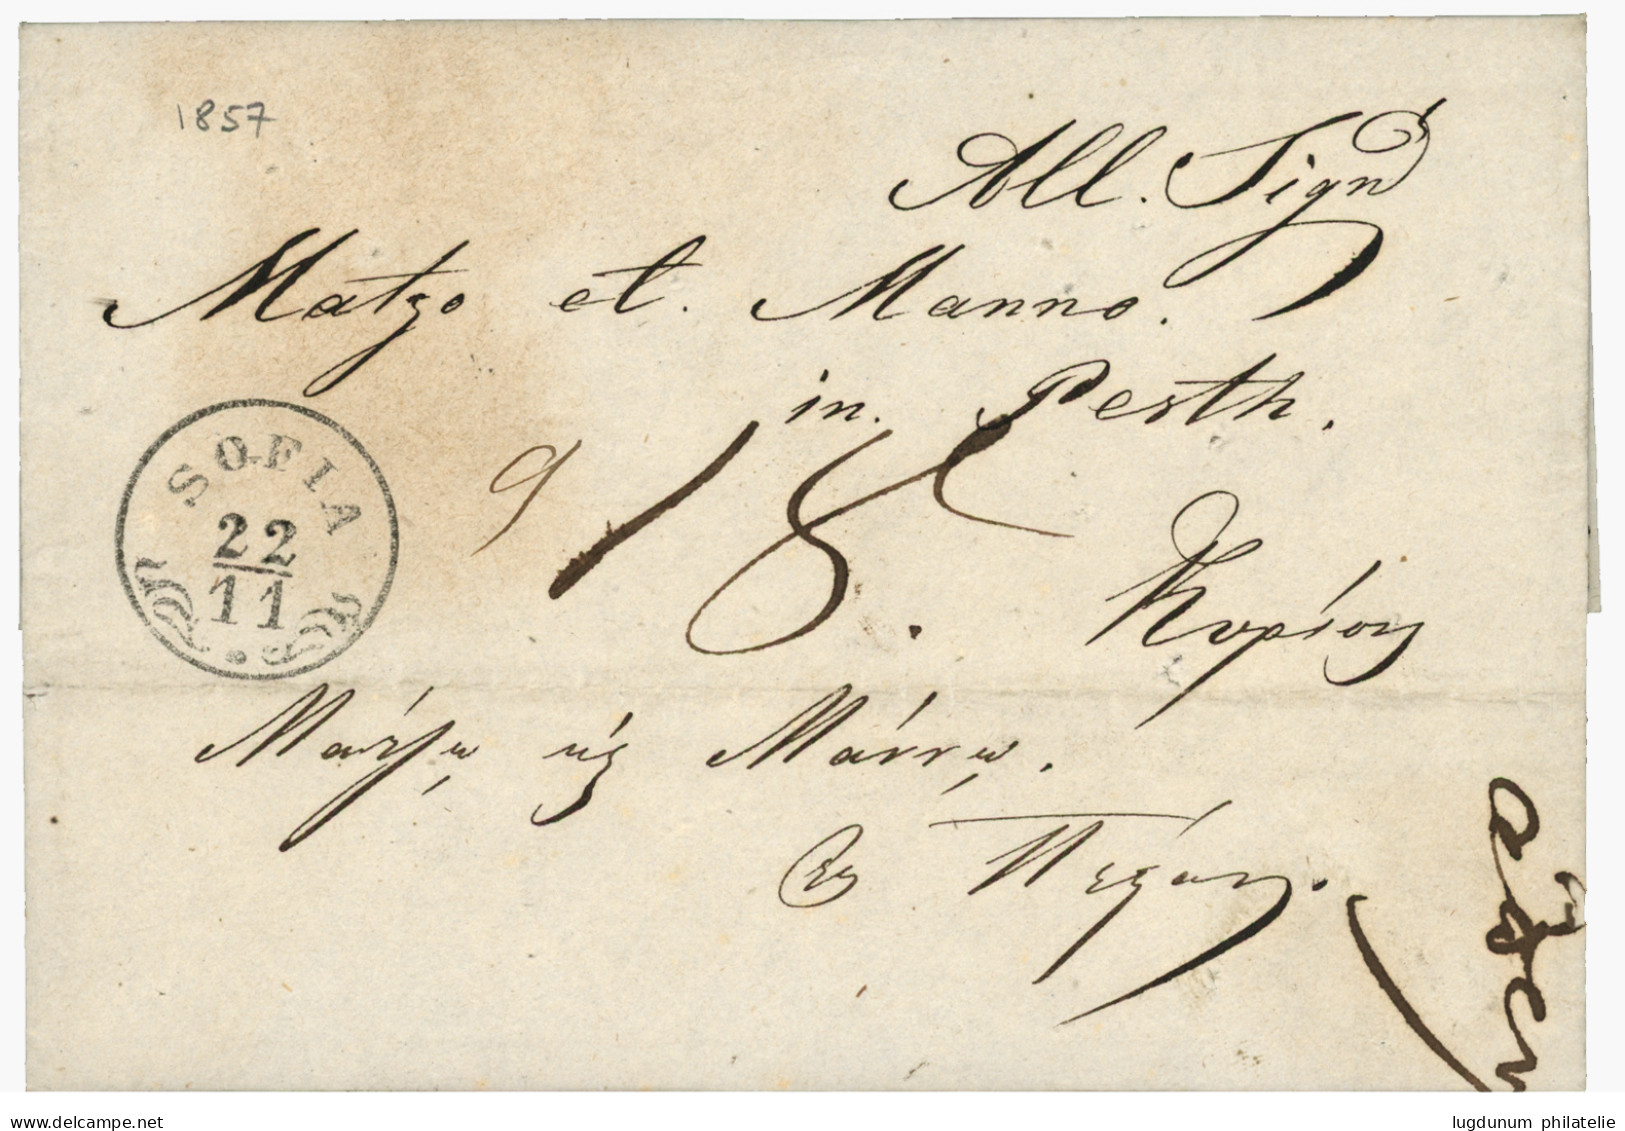 1857
All. Sigri
Matzo et. Manno.
in. Pesth.
SOFIA
22
11
9 18.
Κυρίους
Μάτζω κὲ Μάννω.
Εἰς Πέσταν.
www.delcampe.net
lugdunum philatelie